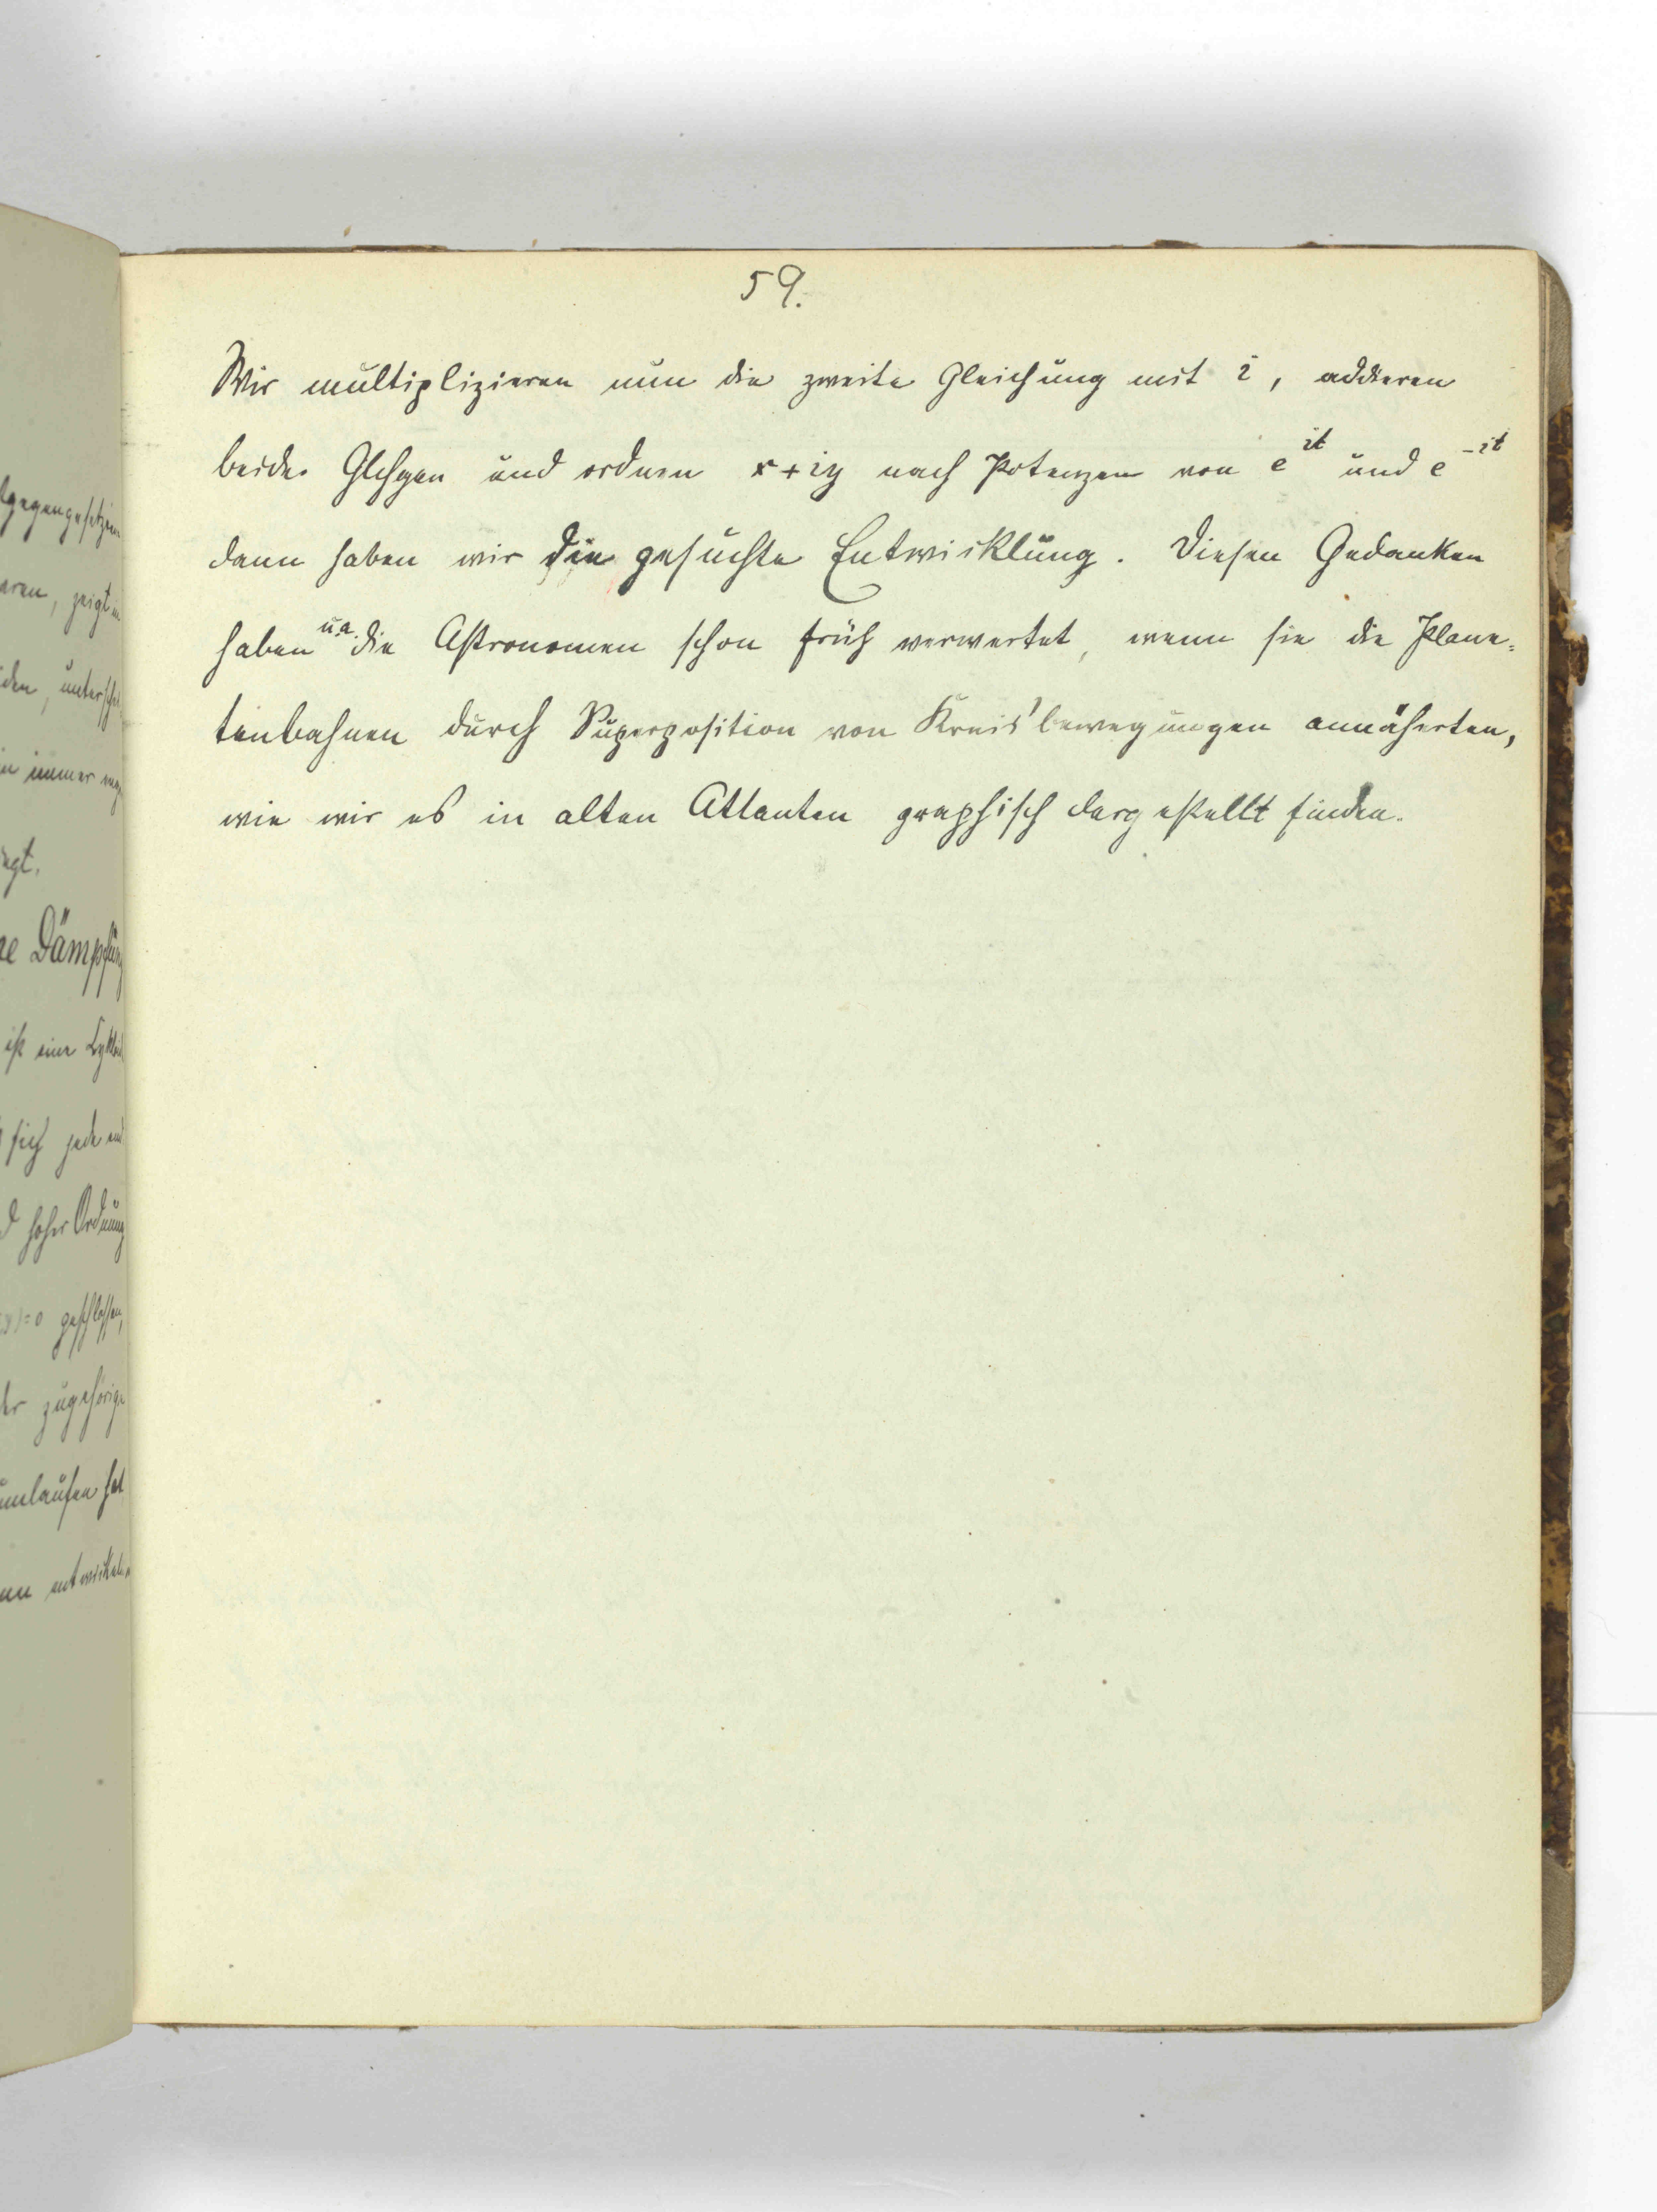 59.
Wir multiplizieren nun die zweite Gleichung mit i, addieren
beide Glchgen und ordnen x+iy nach Potenzen von e^{it} und e^{-it}
dann haben wir die gesuchte Entwicklung. Diesen Gedanken
haben u.a. die Astronomen schon früh verwertet, wenn sie die Plane-
tenbahnen durch Superposition von Kreisbewegungen annäherten,
wie wir es in alten Atlanten graphisch dargestellt finden.
gegengesetzten
eren, zeigt
den, unterschei
immer
egt.
re Dämpfung
ist eine
sich jede
hoher Ordnung
)=0 geschlossen,
der zugehörige
umlaufen hat